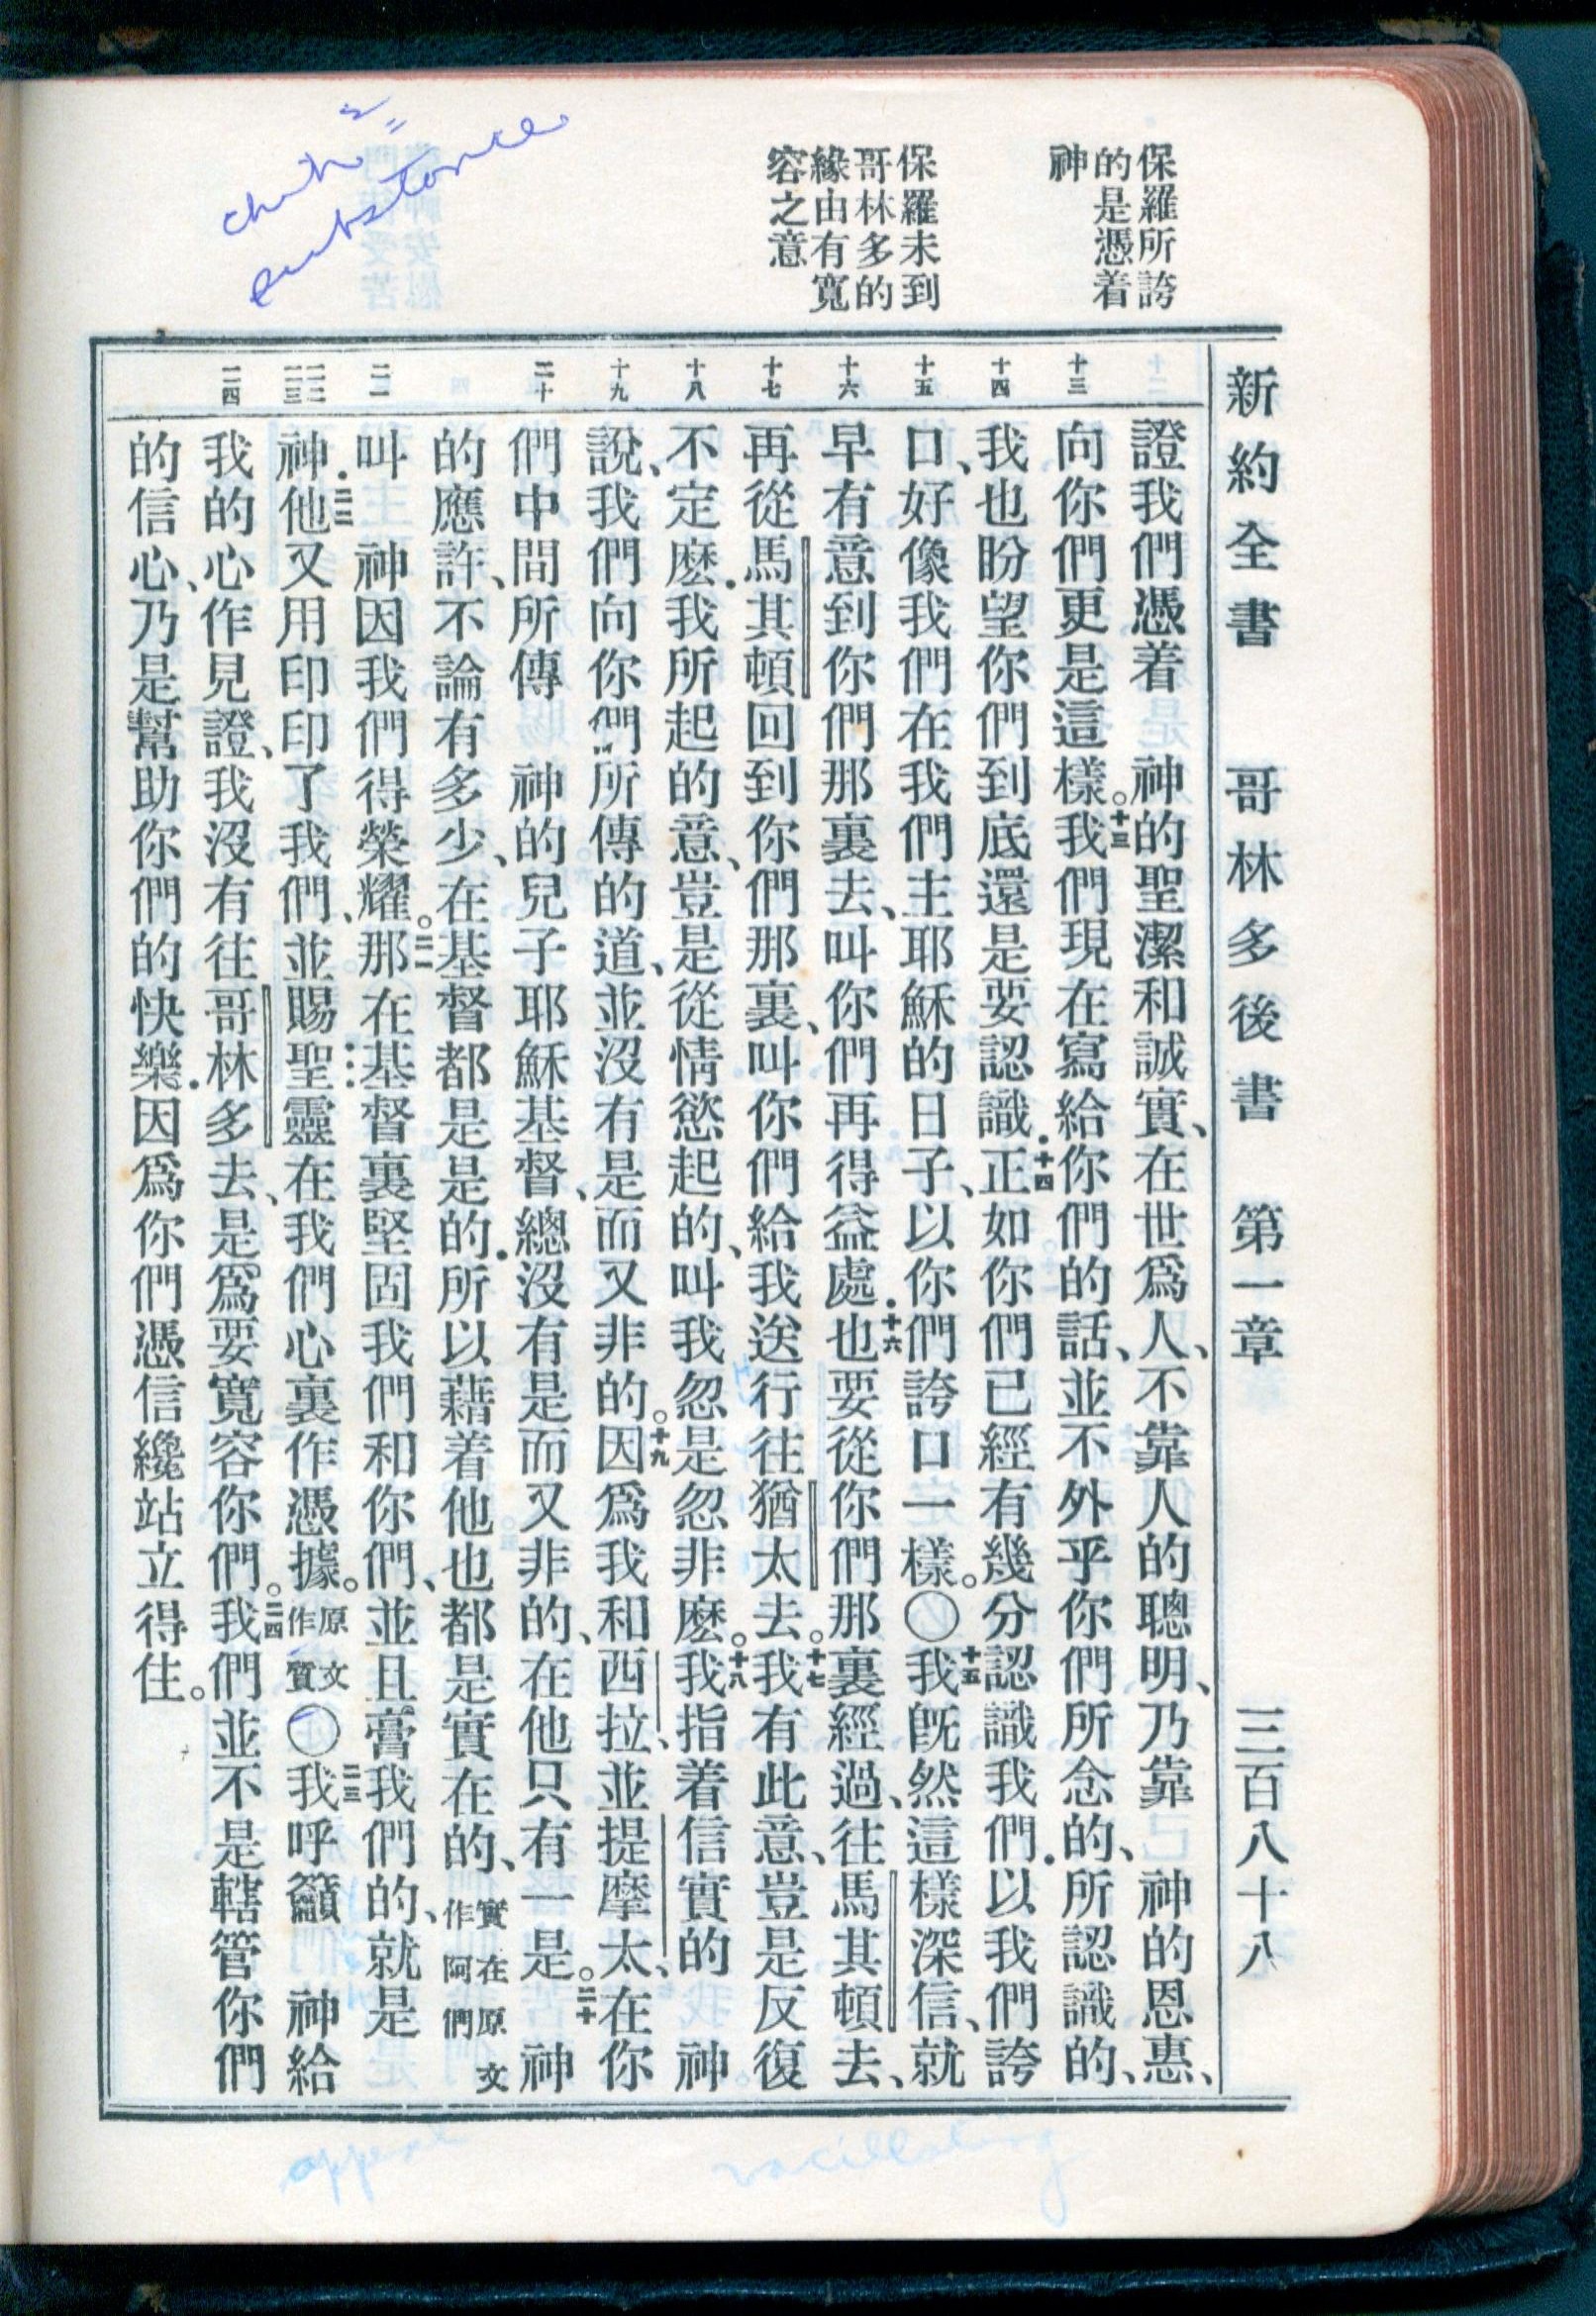 保羅所誇
的是憑着
神
保羅未到
哥林多的
緣由有寬
容之意
substance
新約全書 哥林多後書 第一章 三百八十八
十三
十四
十五
十六
十七
十八
十九
二十
二一
二二
二三
二四
證我們憑着 神的聖潔和誠實、在世爲人、不靠人的聰明、乃靠 神的恩惠、
向你們更是這樣。十三我們現在寫給你們的話、並不外乎你們所念的、所認識的、
我也盼望你們到底還是要認識．十四正如你們已經有幾分認識我們．以我們誇
口、好像我們在我們主耶穌的日子、以你們誇口一樣。〇十五我旣然這樣深信、就
早有意到你們那裏去、叫你們再得益處．十六也要從你們那裏經過、往馬其頓去、
再從馬其頓回到你們那裏、叫你們給我送行往猶太去。十七我有此意、豈是反復
不定麽．我所起的意、豈是從情慾起的、叫我忽是忽非麽。十八我指着信實的 神
說、我們向你們所傳的道、並沒有是而又非的。十九因爲我和西拉、並提摩太、在你
們中間所傳 神的兒子耶穌基督、總沒有是而又非的、在他只有一是。二十 神
的應許、不論有多少、在基督都是是的．所以藉着他也都是實在的、實在原文作阿們
叫 神因我們得榮耀。二一那在基督裏堅固我們和你們、並且膏我們的、就是
神．二二他又用印印了我們、並賜聖靈在我們心裏作憑據。原文作質〇二三我呼籲 神給
我的心作見證、我沒有往哥林多去、是爲要寬容你們。二四我們並不是轄管你們
的信心、乃是幫助你們的快樂．因爲你們憑信纔站立得住。
appeal
vacillating